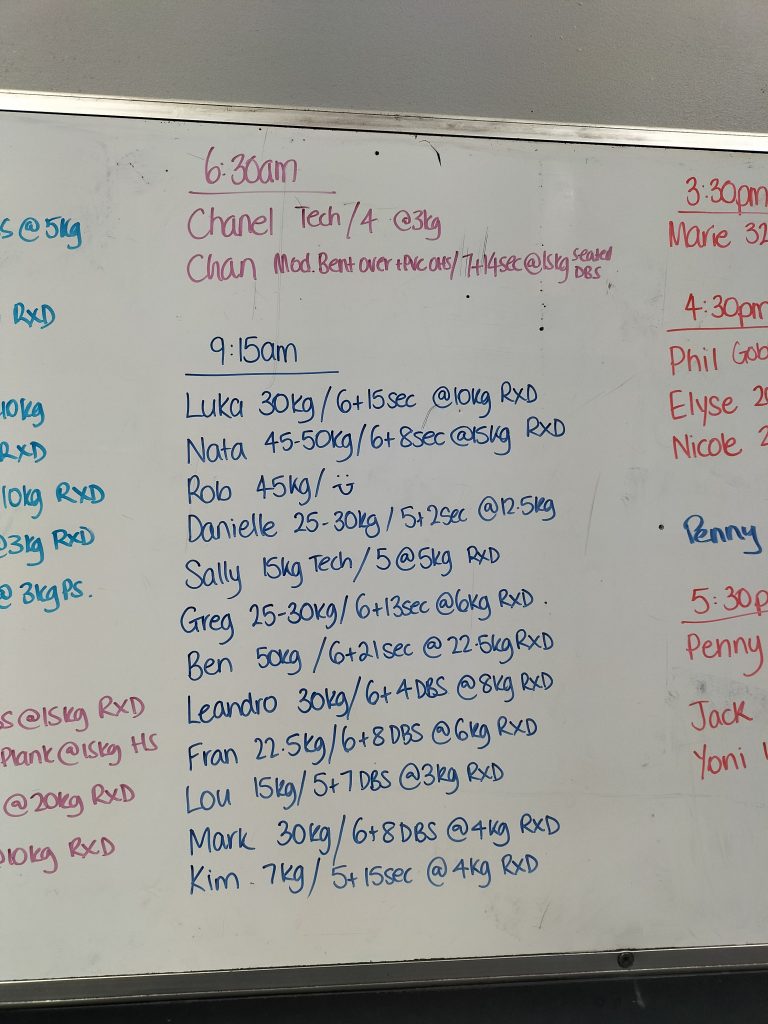 s @ 5kg
RXD
10kg
RXD
10kg RXD
@3kg RXD
@ 3kg PS.
s @15kg RXD
Plank @15kg HS
@20kg RXD
@10kg RXD
6:30am
Chanel Tech/4 @3kg
Chan Mod. Bent over + PVC OHS/7+14sec@15kg seated DBS
9:15am
Luka 30kg/6+15sec @10kg RXD
Nata 45-50kg/6+8sec@15kg RXD
Rob 45kg/ ü
Danielle 25-30kg/5+2sec @12.5kg
Sally 15kg Tech/5@5kg RXD
Greg 25-30kg/6+13sec@6kg RXD.
Ben 50kg/6+21sec @22.5kg RXD
Leandro 30kg/6+4DBS @8kg RXD
Fran 22.5kg/6+8DBS @6kg RXD
Lou 15kg/5+7DBS @3kg RXD
Mark 30kg/6+8DBS @4kg RXD
Kim. 7kg/5+15sec @4kg RXD
3:30pm
Marie 32
4:30pm
Phil Gob
Elyse 2
Nicole 2
Penny
5:30p
Penny
Jack
Yoni